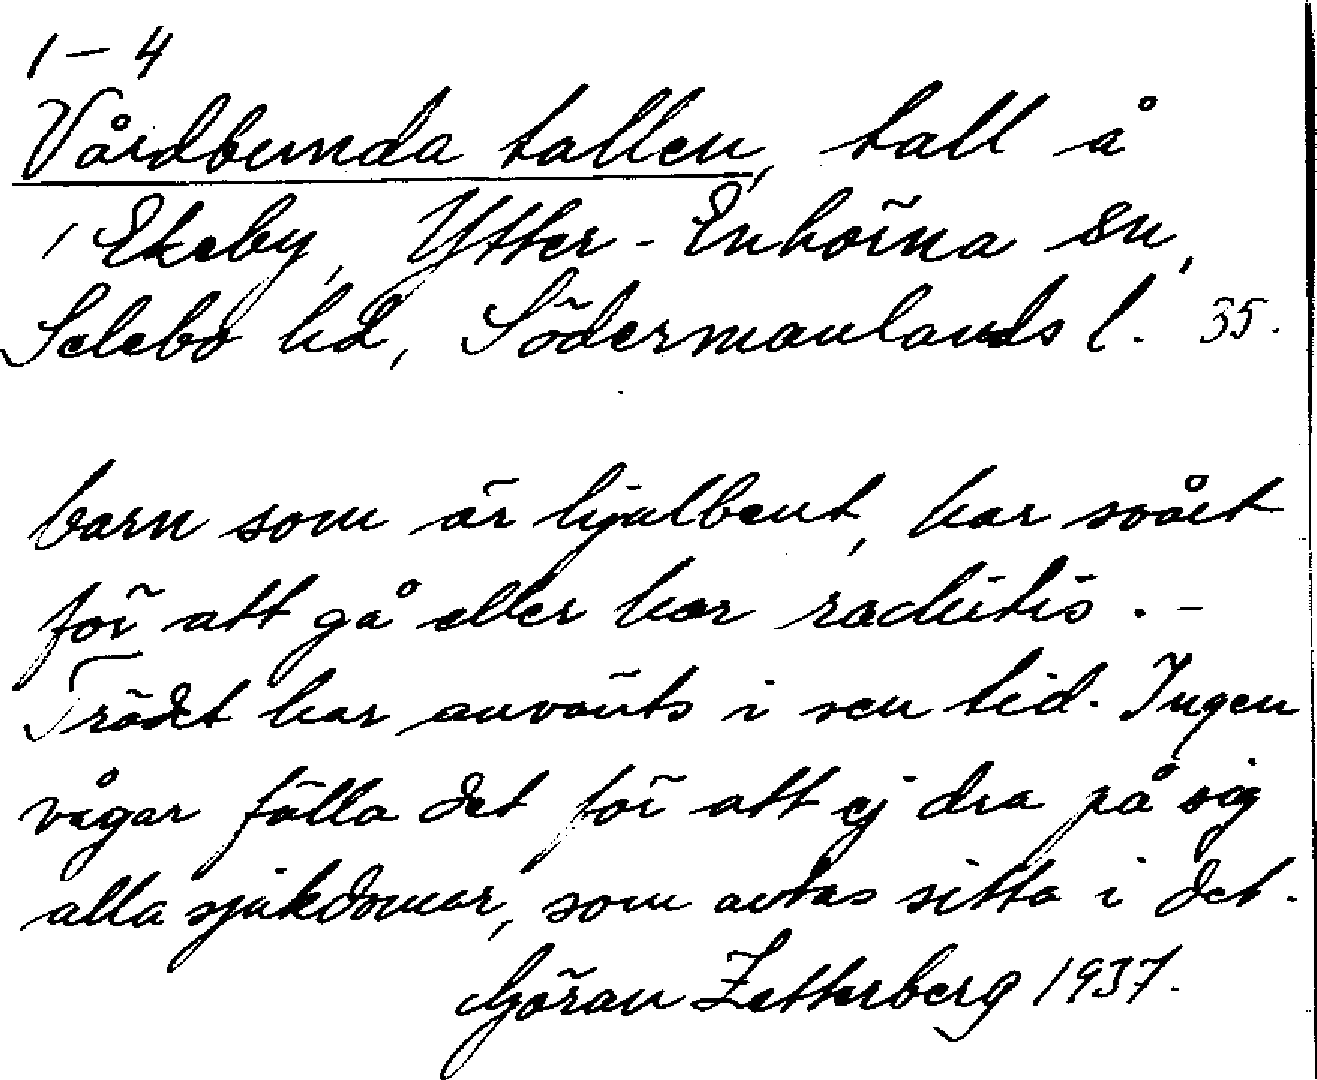 1 – 4
Vårdbunda tallen, tall å
/ Ekeby, Ytter-Enhörna sn,
Selebo hd, Södermanlands l. 35.
barn som är hjulbent, har svårt
för att gå eller har rachitis. –
Trädet har använts i sen tid. Ingen
vågar fälla det för att ej dra på sig
alla sjukdomar, som antas sitta i det.
Göran Zetterberg 1937.